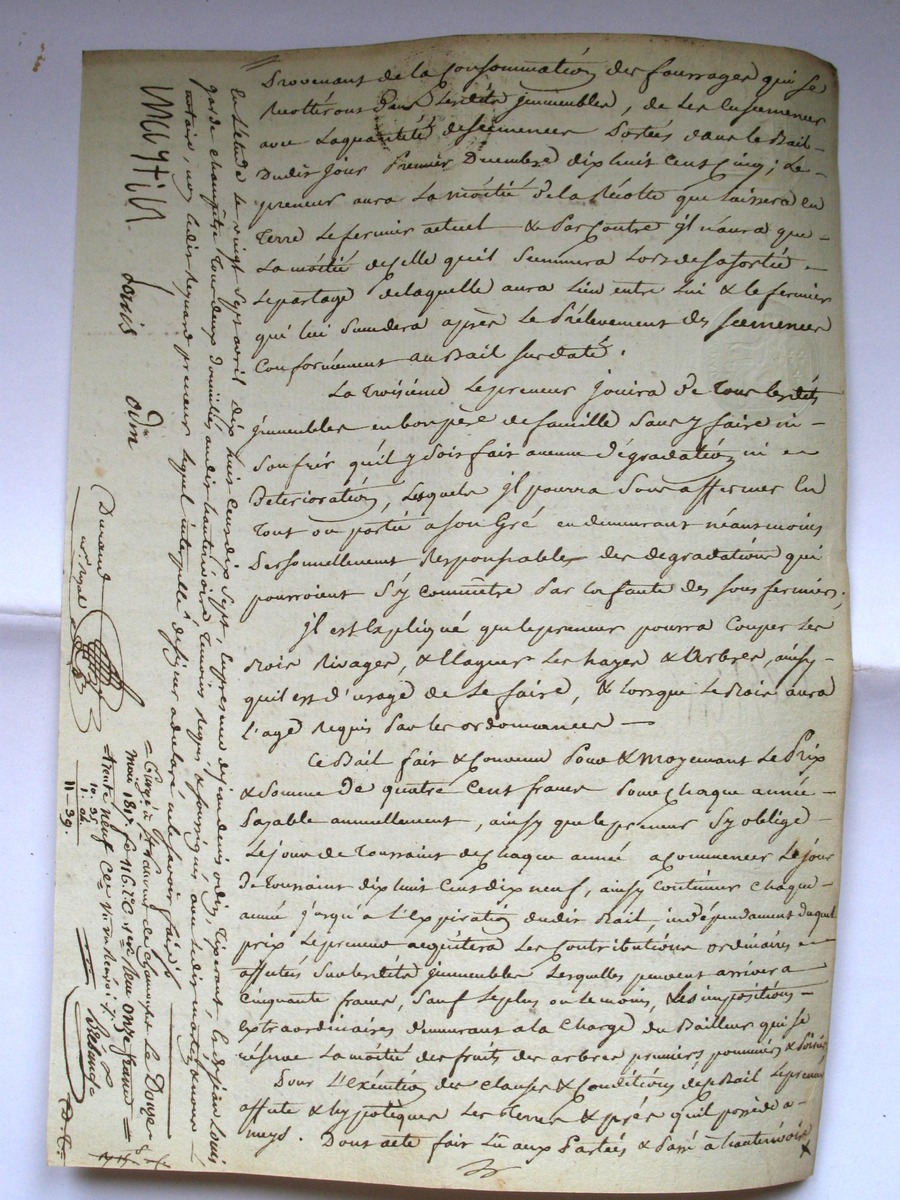 Provenant de la Consommation des fourrages qui se
Recolteront dans lesdits jmmeubles, de les Ensemencer
avec La quantité de semences Portées dans le Bail
Dudit Jour Premier Decembre dix huit Cent Cinq; Le
preneur aura La moitié de la Récolte que laissera en
Terre Le fermier actuel & Par Contre jl n'aura que
La moitié de Celle qu'il Semmera Lors de sa sortie
Le partage de laquelle aura Lieu entre Lui & le fermier
qui lui Succedera après Le Prélevement des semences
Conformement au Bail sus daté.
La Troisième Le preneur jouira de Tous lesdits
jmmeubles en bon père de famille Sans y faire ni
Soufrir qu'il y Soit fait aucune dégradation ni
Déterioration, Lesquels jl pourra Sous affermer En
Tout ou partie a son Gré en demeurant néanmoins
Personnellement Responsable des degradations qui
pourroient S'y Commettre Par la faute des sous fermiers;
jl est Expliqué que le preneur pourra Couper Les
Bois Rivages, & Elaguer Les hayes & Arbres, ainsy
qu'il est d'usage de Le faire, & Lorsque Le Bois aura
L'age Requis Par les ordonnances
Ce Bail fait & Convenu Pour & moyenant Le Prix
& Somme de quatre Cent francs Pour Chaque année
Payable annuellement, ainsy que le preneur S'y oblige
Le jour de Toussaint de Chaque année a Commencer Le jour
De Toussaint dix huit Cent dix neuf, ainsy Continuer Chaque
année jusqu'a L'Expiration dudit Bail, indépendament duquel
prix Le preneur acquitera Les Contributions ordinaires
affectés Sur lesdits jmmeubles Lesquelles peuvent arriver a
Cinquante francs, Sauf Le plus ou le moins, Les impositions
Extraordinaires demeurant a la Charge du Bailleur qui se
réserve La moitié des fruits des arbres pruniers pommiers & Poiriers
Pour L'Exécution des Clauses & Conditions du Bail Le preneur
affecte & hypotèque Les Terres & prés qu'il possède a
. Dont acte fait Lu aux Parties & Passé à hauterivoire
En L'Etude Le vingt Sept avril dix huit Cent dix Sept, En presence de jean denis odin Tisserant, & de jean Louis
garde Champêtre Tous deux domiciliés audit hauterivoire Temoins Requis & soussignés, avec Ledit & nous
notaire, non Ledit preneur Lequel interpellé de signer a declaré ne le savoir faire
Louis odin
Durand
Nre Royal
Enrgé à St Laurent de Chamousset Le Douze
mai 1817. fo 116. Reçu onze francs
trente neuf Ces
10. 35
11-39.